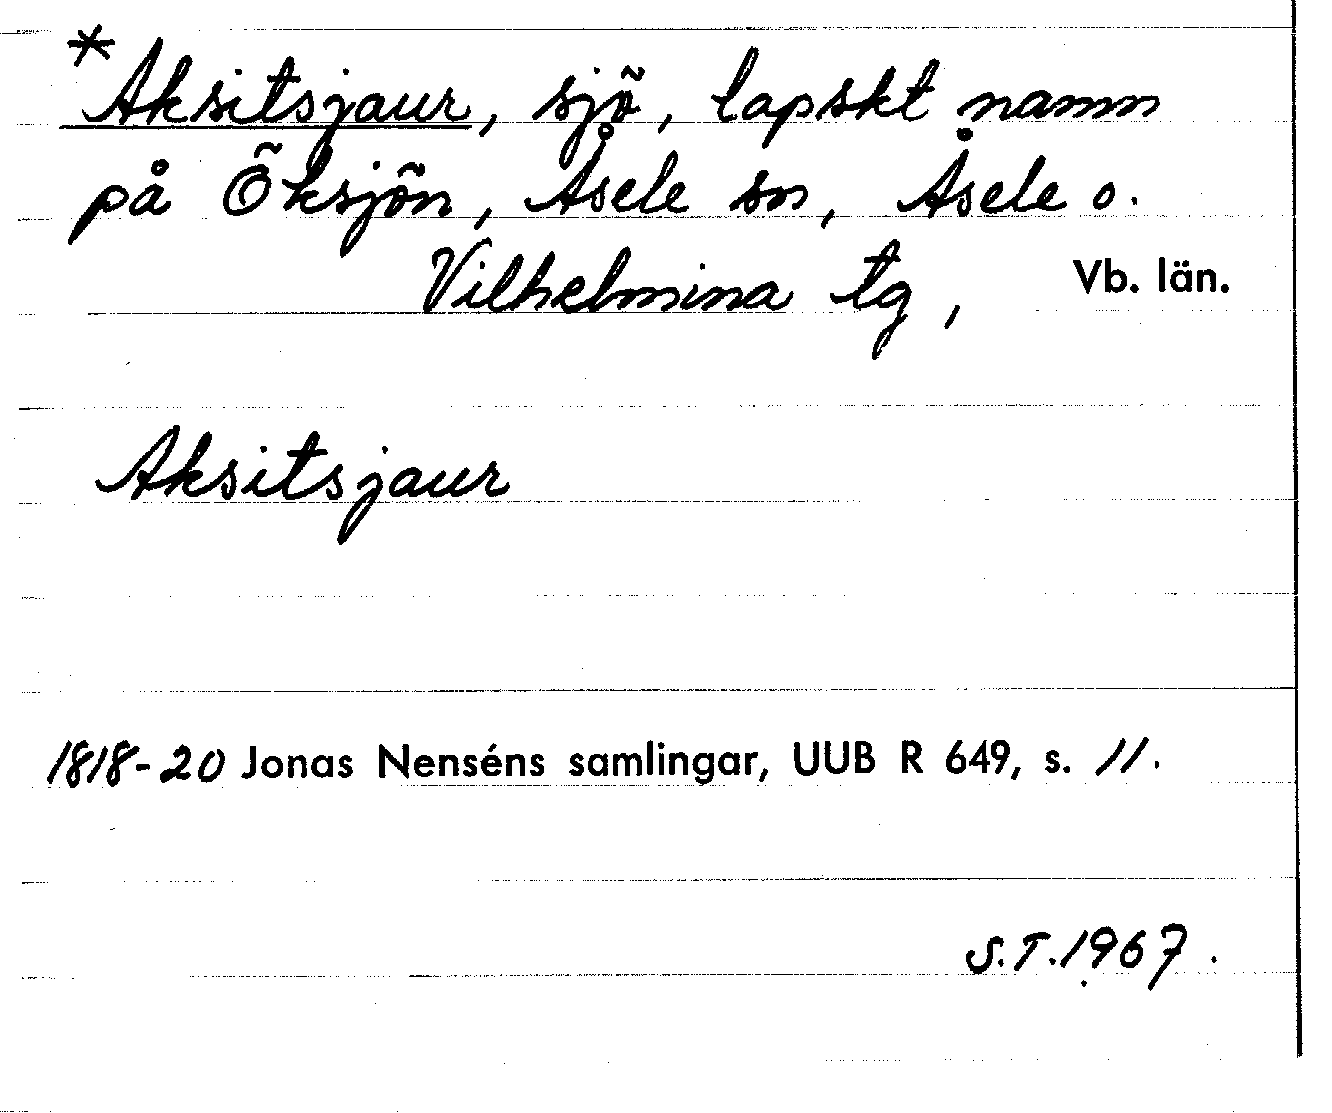 *Aksitsjaur, sjö, lapskt namn
på Öksjön, Åsele sn, Åsele o.
Vilhelmina tg, Vb. län.
Aksitsjaur
1818-20 Jonas Nenséns samlingar, UUB R 649, s. 11.
S.T. 1967.